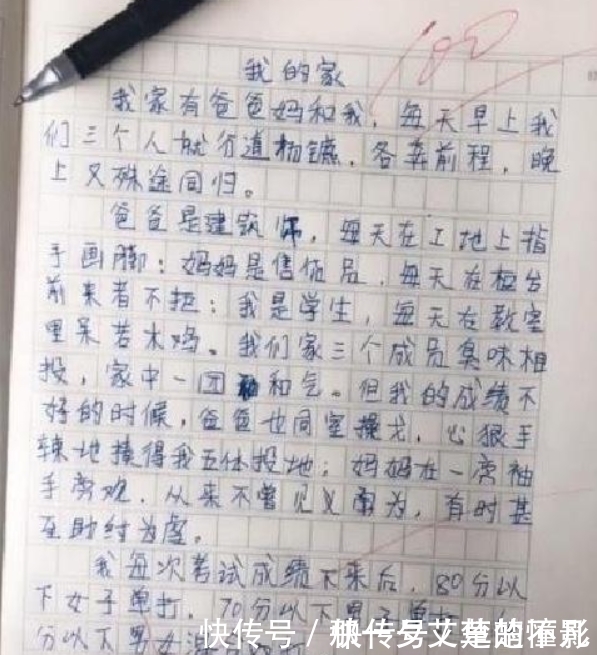 100
我的家
我家有爸爸妈和我，每天早上我
们三个人就分道扬镳，各奔前程，晚
上又殊途同归。
爸爸是建筑师，每天在工地上指
手画脚；妈妈是售货员，每天在柜台
前来者不拒；我是学生，每天在教室
里呆若木鸡。我们家三个成员臭味相
投，家中一团和气。但我的成绩不
好的时候，爸爸也同室操戈，心狠手
辣地揍得我五体投地；妈妈在一旁袖
手旁观，从来不曾见义勇为，有时甚
至助纣为虐。
我每次考试成绩下来后，80分以
下女子单打，70分以下男子单打，
分以下男女混
快传号／